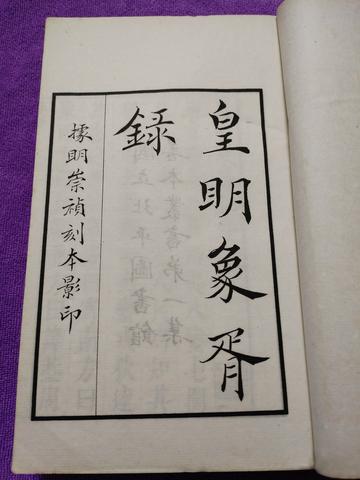 皇明象胥
錄
據明崇禎刻本影印